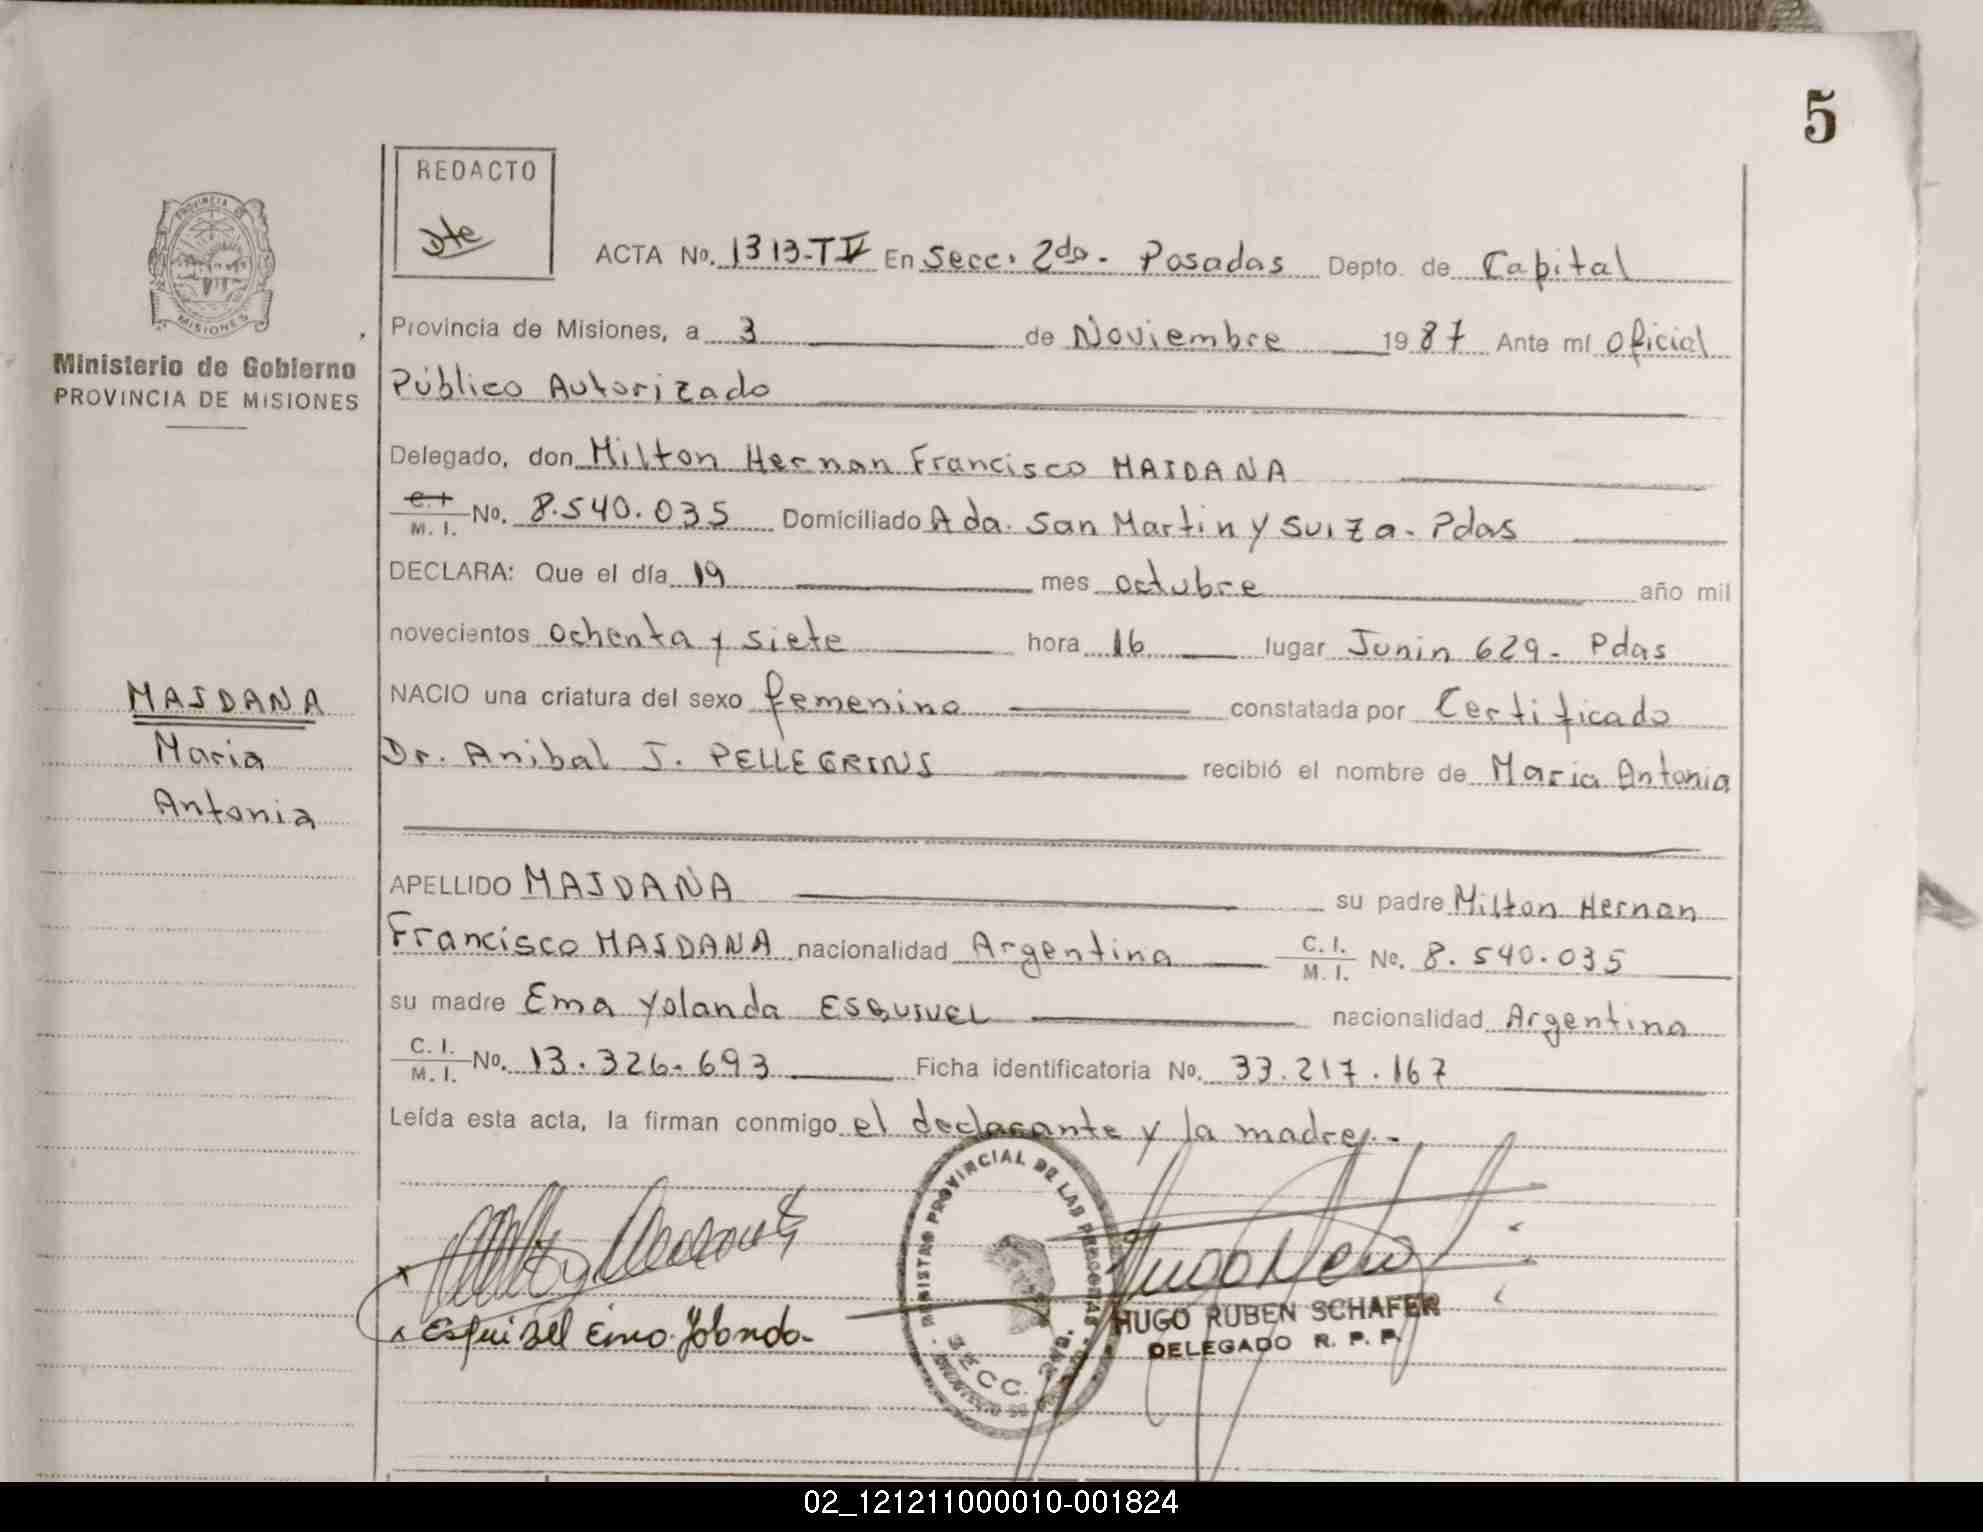 5
REDACTO
Dte
PROVINCIA DE
MISIONES
Ministerio de Gobierno
PROVINCIA DE MISIONES
ACTA No. 1313-T IV En Secc. 2da. Posadas Depto. de Capital
Provincia de Misiones, a 3 de Noviembre 1987 Ante mí Oficial
Público Autorizado
Delegado, don Milton Hernan Francisco MAIDANA
C.I. M. I. No. 8.540.035 Domiciliado Ada. San Martin y Suiza - Pdas
DECLARA: Que el día 19 mes octubre año mil
novecientos ochenta y siete hora 16 lugar Junin 629 - Pdas
NACIO una criatura del sexo femenino constatada por Certificado
Dr. Anibal J. PELLEGRINI recibió el nombre de Maria Antonia
MAIDANA
Maria
Antonia
APELLIDO MAIDANA su padre Milton Hernan
Francisco MAIDANA nacionalidad Argentina C. I. M. I. No. 8.540.035
su madre Ema Yolanda ESQUIVEL nacionalidad Argentina
C. I. M. I. No. 13.326.693 Ficha identificatoria No. 33.217.167
Leída esta acta, la firman conmigo el declarante y la madre.-
x Esquibel Ema Yolanda
REGISTRO PROVINCIAL DE LAS PERSONAS
SECC.
HUGO RUBEN SCHAFER
DELEGADO R. P. P.
02_121211000010-001824